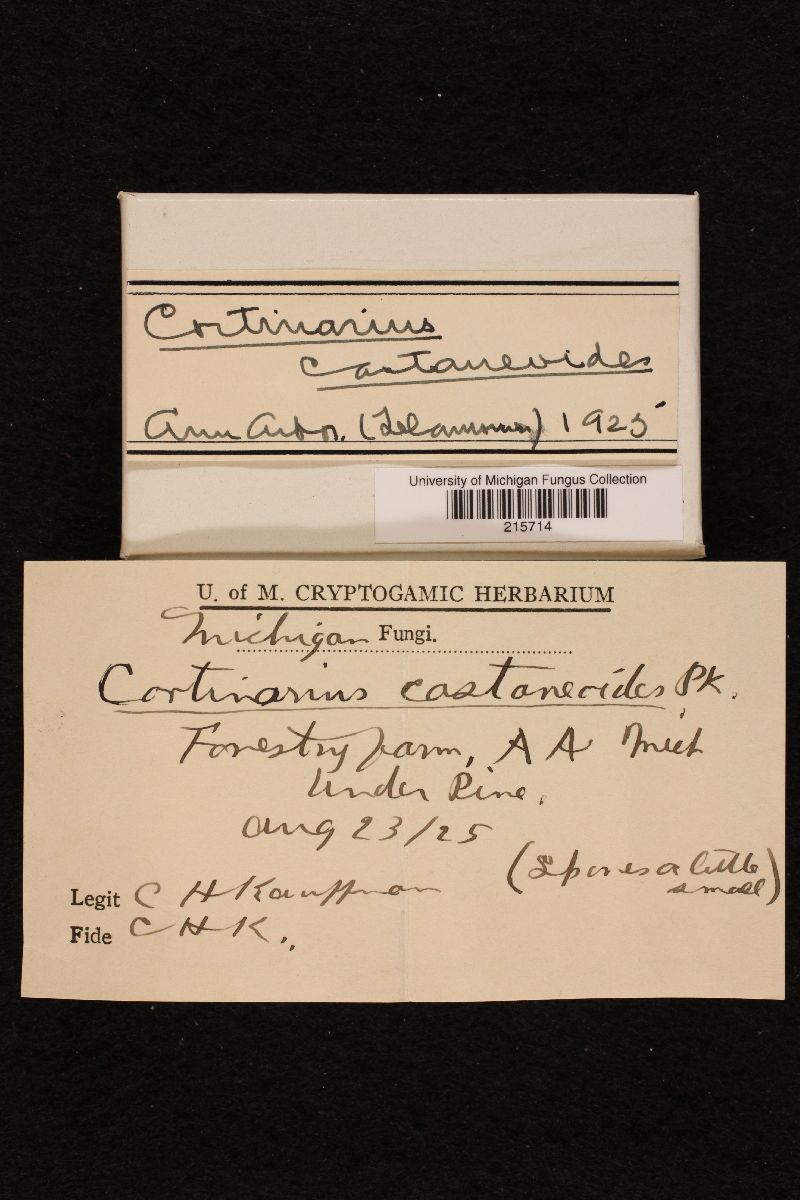 Cortinarius
castaneoides
Ann Arbor. (Telamonia) 1925
University of Michigan Fungus Collection
215714
U. of M. CRYPTOGAMIC HERBARIUM
Michigan Fungi.
Cortinarius castaneoides Pk.
Forestry farm, A A Mich
Under Pine.
Aug 23/25
(Spores a little
small)
Legit C H Kauffman
Fide C H K.